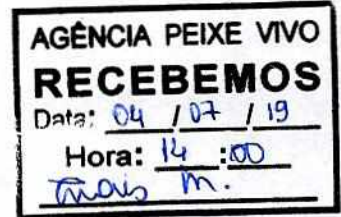 AGÊNCIA PEIXE VIVO
RECEBEMOS
Data: 04 / 07 / 19
Hora: 14 :00
Thais M.